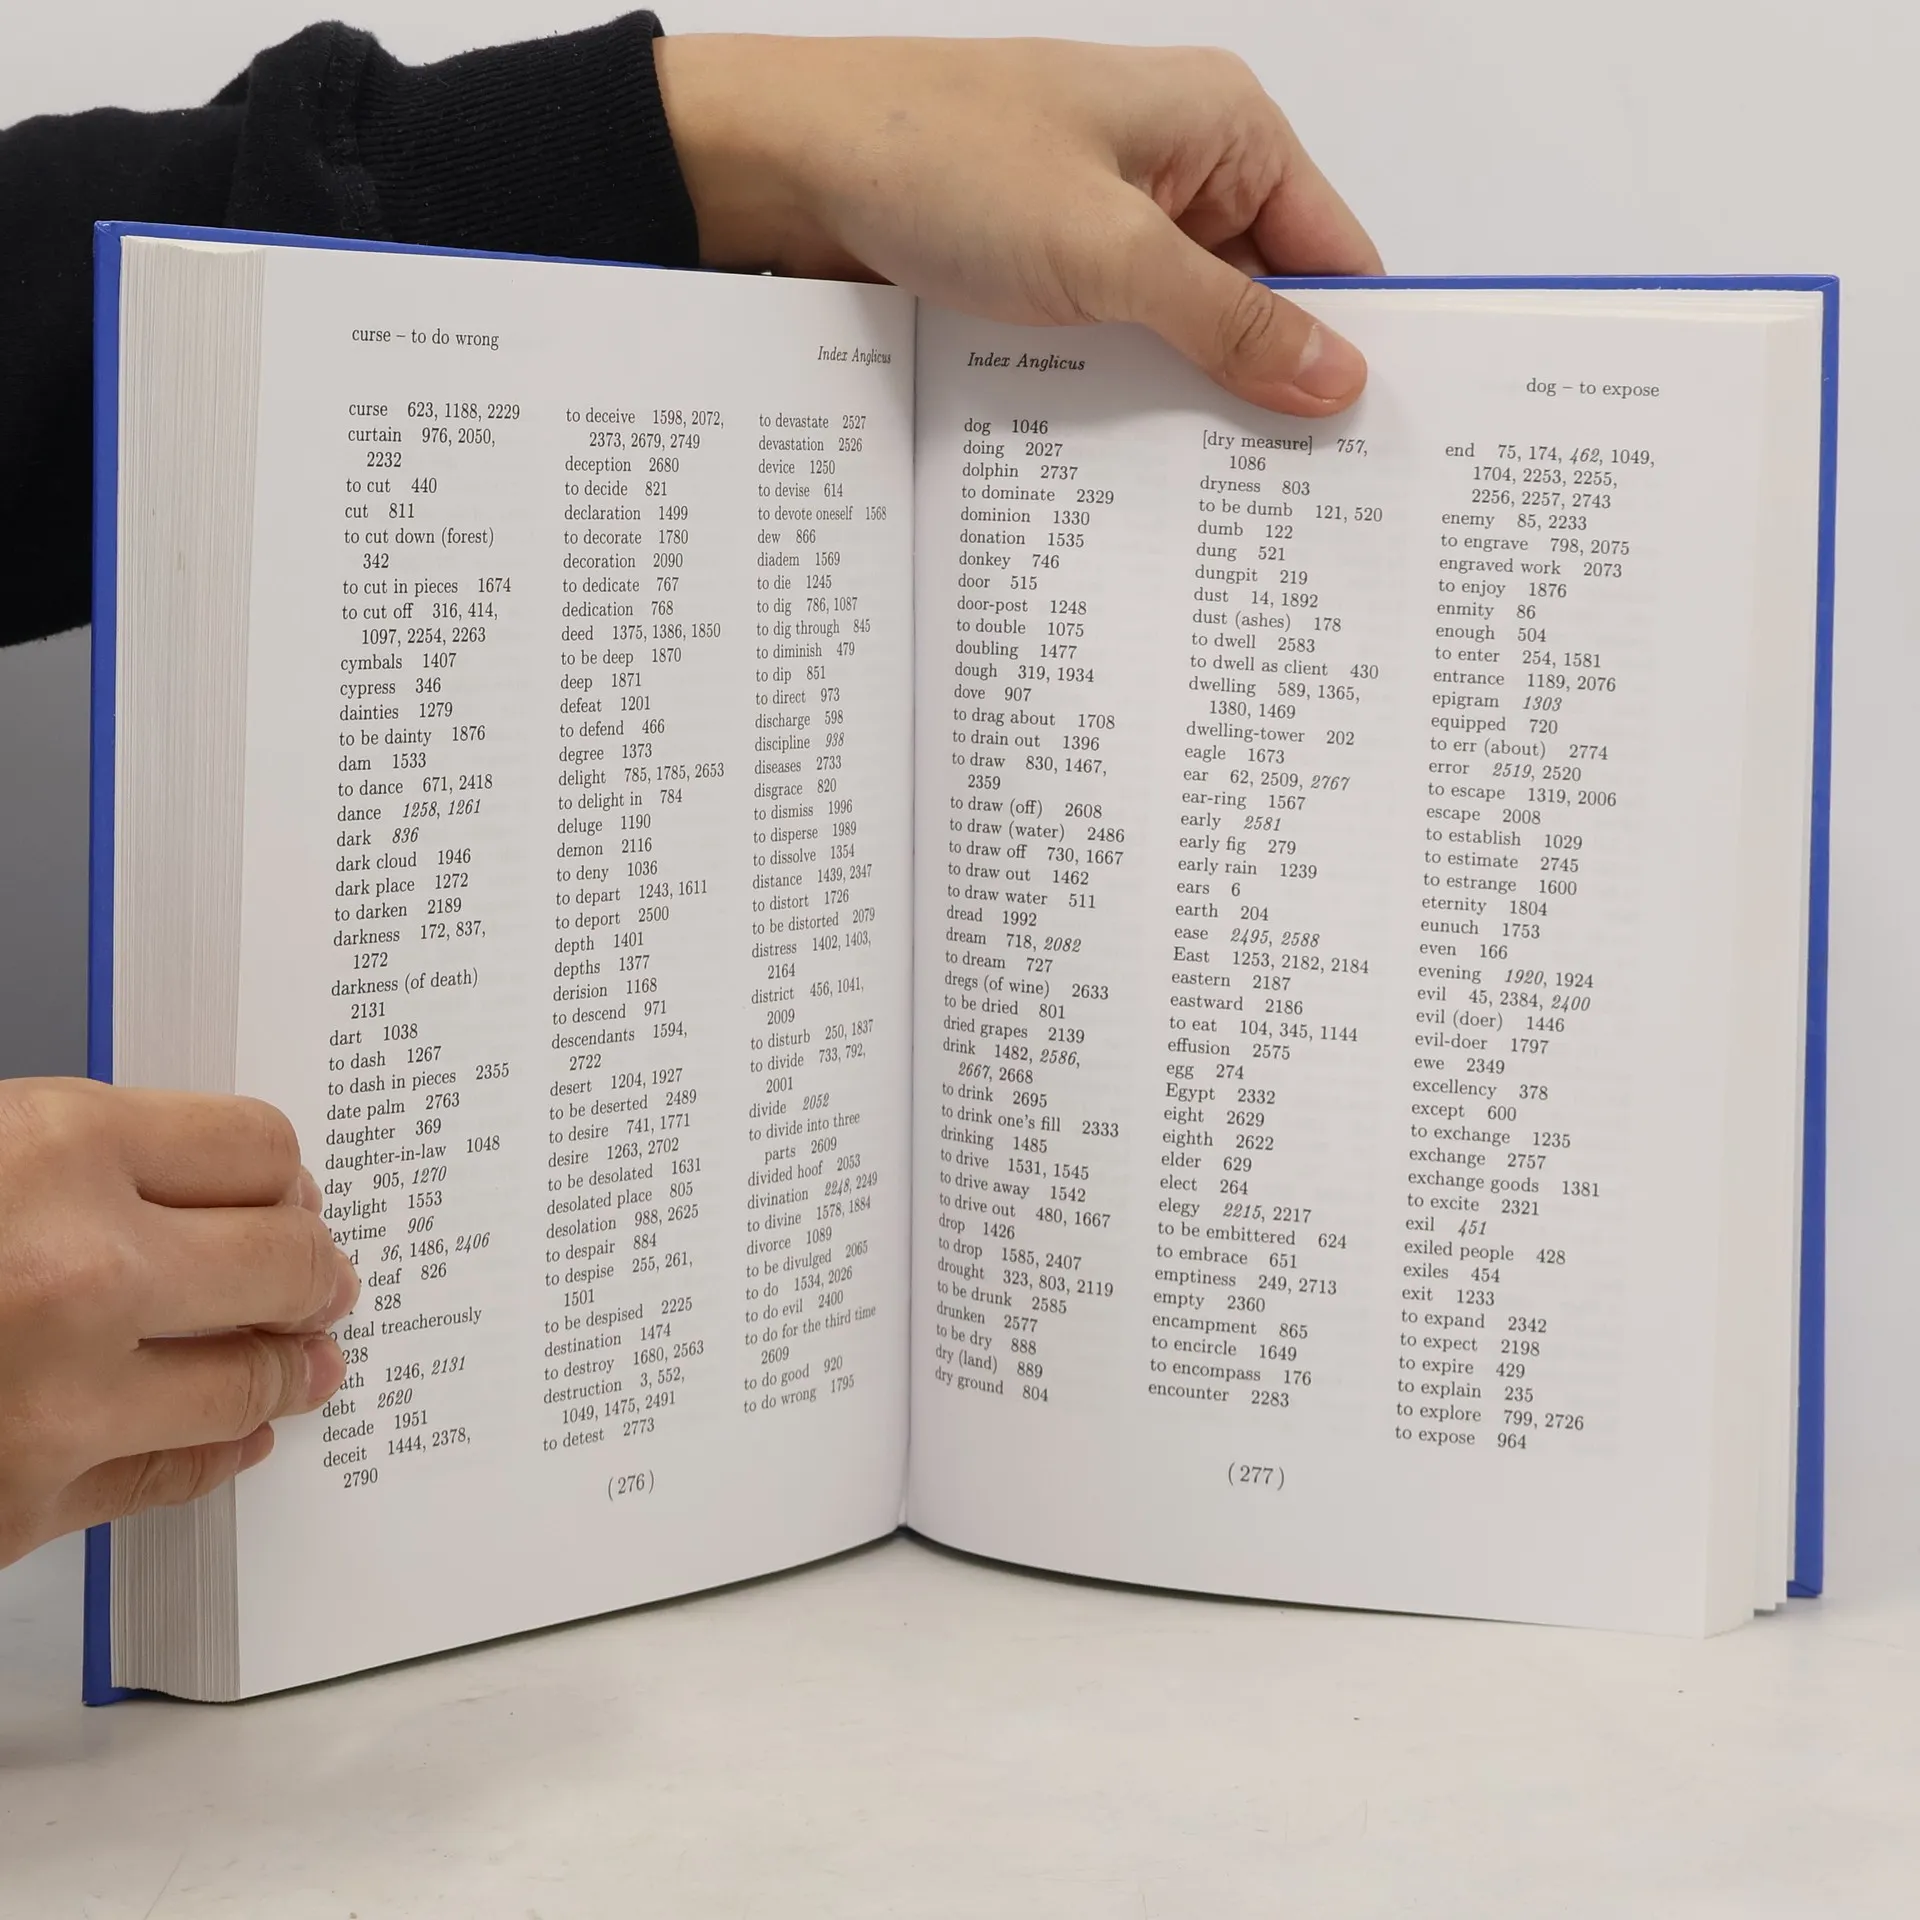 curse – to do wrong
Index Anglicus
curse 623, 1188, 2229
curtain 976, 2050,
2232
to cut 440
cut 811
to cut down (forest)
342
to cut in pieces 1674
to cut off 316, 414,
1097, 2254, 2263
cymbals 1407
cypress 346
dainties 1279
to be dainty 1876
dam 1533
to dance 671, 2418
dance 1258, 1261
dark 836
dark cloud 1946
dark place 1272
to darken 2189
darkness 172, 837,
1272
darkness (of death)
2131
dart 1038
to dash 1267
to dash in pieces 2355
date palm 2763
daughter 369
daughter-in-law 1048
day 905, 1270
daylight 1553
aytime 906
d 36, 1486, 2406
deaf 826
828
deal treacherously
238
ath 1246, 2131
debt 2620
decade 1951
deceit 1444, 2378,
2790
to deceive 1598, 2072,
2373, 2679, 2749
deception 2680
to decide 821
declaration 1499
to decorate 1780
decoration 2090
to dedicate 767
dedication 768
deed 1375, 1386, 1850
to be deep 1870
deep 1871
defeat 1201
to defend 466
degree 1373
delight 785, 1785, 2653
to delight in 784
deluge 1190
demon 2116
to deny 1036
to depart 1243, 1611
to deport 2500
depth 1401
depths 1377
derision 1168
to descend 971
descendants 1594,
2722
desert 1204, 1927
to be deserted 2489
to desire 741, 1771
desire 1263, 2702
to be desolated 1631
desolated place 805
desolation 988, 2625
to despair 884
to despise 255, 261,
1501
to be despised 2225
destination 1474
to destroy 1680, 2563
destruction 3, 552,
1049, 1475, 2491
to detest 2773
to devastate 2527
devastation 2526
device 1250
to devise 614
to devote oneself 1568
dew 866
diadem 1569
to die 1245
to dig 786, 1087
to dig through 845
to diminish 479
to dip 851
to direct 973
discharge 598
discipline 938
diseases 2733
disgrace 820
to dismiss 1996
to disperse 1989
to dissolve 1354
distance 1439, 2347
to distort 1726
to be distorted 2079
distress 1402, 1403,
2164
district 456, 1041,
2009
to disturb 250, 1837
to divide 733, 792,
2001
divide 2052
to divide into three
parts 2609
divided hoof 2053
divination 2248, 2249
to divine 1578, 1884
divorce 1089
to be divulged 2065
to do 1534, 2026
to do evil 2400
to do for the third time
2609
to do good 920
to do wrong 1795
(276)
Index Anglicus
dog – to expose
dog 1046
doing 2027
dolphin 2737
to dominate 2329
dominion 1330
donation 1535
donkey 746
door 515
door-post 1248
to double 1075
doubling 1477
dough 319, 1934
dove 907
to drag about 1708
to drain out 1396
to draw 830, 1467,
2359
to draw (off) 2608
to draw (water) 2486
to draw off 730, 1667
to draw out 1462
to draw water 511
dread 1992
dream 718, 2082
to dream 727
dregs (of wine) 2633
to be dried 801
dried grapes 2139
drink 1482, 2586,
2667, 2668
to drink 2695
to drink one's fill 2333
drinking 1485
to drive 1531, 1545
to drive away 1542
to drive out 480, 1667
drop 1426
to drop 1585, 2407
drought 323, 803, 2119
to be drunk 2585
drunken 2577
to be dry 888
dry (land) 889
dry ground 804
[dry measure] 757,
1086
dryness 803
to be dumb 121, 520
dumb 122
dung 521
dungpit 219
dust 14, 1892
dust (ashes) 178
to dwell 2583
to dwell as client 430
dwelling 589, 1365,
1380, 1469
dwelling-tower 202
eagle 1673
ear 62, 2509, 2767
ear-ring 1567
early 2581
early fig 279
early rain 1239
ears 6
earth 204
ease 2495, 2588
East 1253, 2182, 2184
eastern 2187
eastward 2186
to eat 104, 345, 1144
effusion 2575
egg 274
Egypt 2332
eight 2629
eighth 2622
elder 629
elect 264
elegy 2215, 2217
to be embittered 624
to embrace 651
emptiness 249, 2713
empty 2360
encampment 865
to encircle 1649
to encompass 176
encounter 2283
end 75, 174, 462, 1049,
1704, 2253, 2255,
2256, 2257, 2743
enemy 85, 2233
to engrave 798, 2075
engraved work 2073
to enjoy 1876
enmity 86
enough 504
to enter 254, 1581
entrance 1189, 2076
epigram 1303
equipped 720
to err (about) 2774
error 2519, 2520
to escape 1319, 2006
escape 2008
to establish 1029
to estimate 2745
to estrange 1600
eternity 1804
eunuch 1753
even 166
evening 1920, 1924
evil 45, 2384, 2400
evil (doer) 1446
evil-doer 1797
ewe 2349
excellency 378
except 600
to exchange 1235
exchange 2757
exchange goods 1381
to excite 2321
exil 451
exiled people 428
exiles 454
exit 1233
to expand 2342
to expect 2198
to expire 429
to explain 235
to explore 799, 2726
to expose 964
(277)